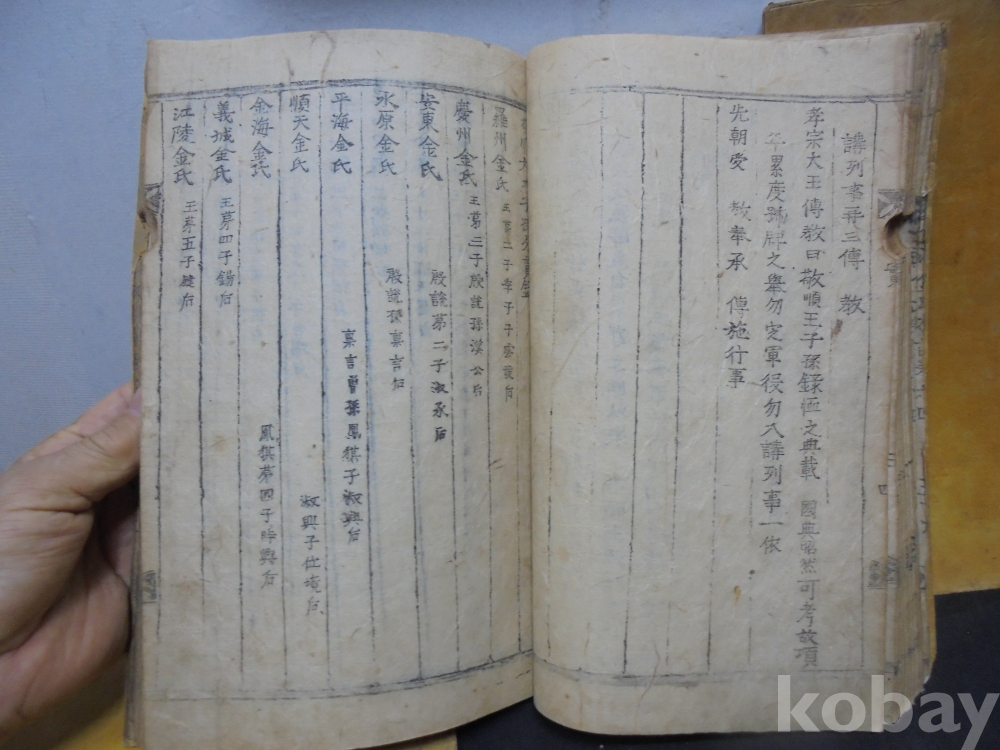 講列事第三傳 教
孝宗大王傳教曰敬順王子孫錄恒之典載 國典昭然可考故項
年累度號牌之擧勿定軍役勿入講列事一依
先朝受 教奉承 傳施行事
羅州金氏 王第二子
慶州金氏 王第三子殷說孫漢公后
安東金氏 殷說第二子淑承后
水原金氏 殷說孫嘉言后
平海金氏 嘉言曾孫鳳猉子淑興后
順天金氏 淑興子仕境后
金海金氏 鳳猉第四子時興后
義城金氏 王第四子錫后
江陵金氏 王第五子鍵后
kobay